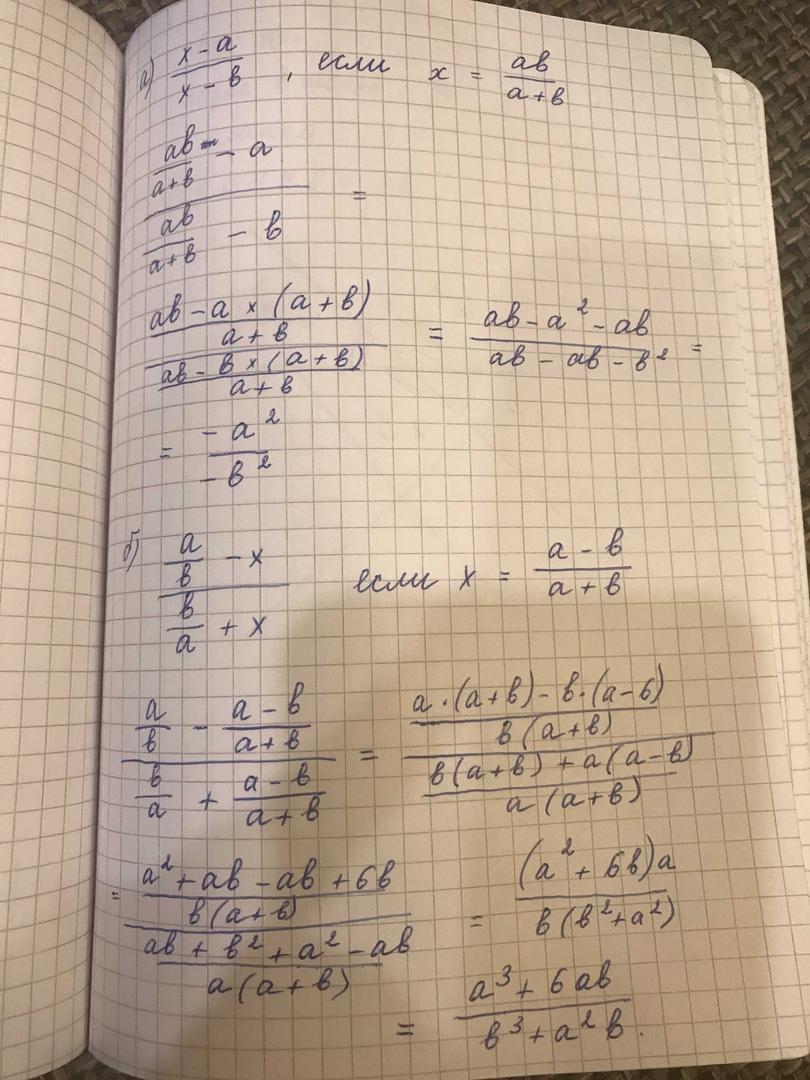 а) (x - a)/(x - b) , если x = ab/(a + b)
(ab/(a + b) - a)/(ab/(a + b) - b) =
((ab - a × (a + b))/(a + b))/((ab - b × (a + b))/(a + b)) = (ab - a² - ab)/(ab - ab - b²) =
= (- a²)/(- b²)
б) (a/b - x)/(b/a + x) если x = (a - b)/(a + b)
(a/b - (a - b)/(a + b))/(b/a + (a - b)/(a + b)) = ((a · (a + b) - b · (a - 6))/(b (a + b)))/((b (a + b) + a (a - b))/(a (a + b)))
= ((a² + ab - ab + 6b)/(b (a + b)))/((ab + b² + a² - ab)/(a (a + b))) = ((a² + 6b) a)/(b (b² + a²))
= (a³ + 6ab)/(b³ + a² b).